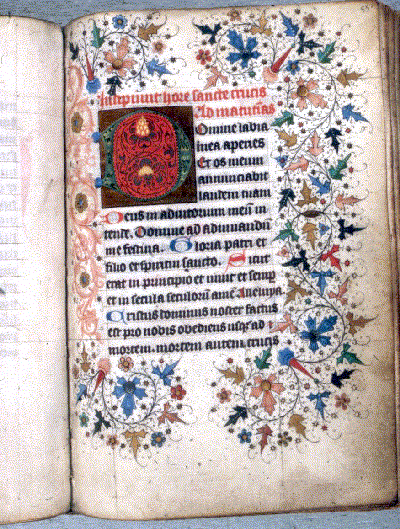 Incipiunt hore sancte crucis
Ad matutinas
Domine labia
mea aperies
Et os meum
annunciabit
laudem tuam
Deus in adiutorium meū in
tende. Domine ad adiuuandū
me festina. Gloria patri et
filio et spiritui sancto. Sicut
erat in principio et nunc et semp
et in secula seculorū amē. Alleluya
Cristus dominus noster factus
est pro nobis obediens usqȝ ad
mortem. mortem autem crucis